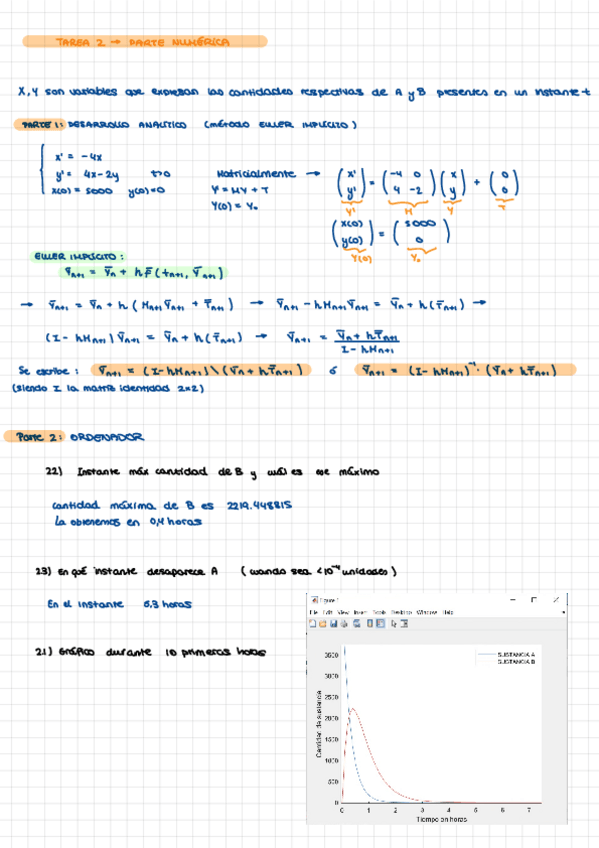 TAREA 2 → PARTE NUMÉRICA
X, Y son variables que expresan las cantidades respectivas de A y B presentes en un instante t
PARTE 1: DESARROLLO ANALÍTICO (MÉTODO EULER IMPLÍCITO)
x' = -4x
y' = 4x-2y t>0
x(0) = 5000 y(0)=0
Matricialmente →
Y' = MY + T
Y(0) = Y₀
(x' y') = (-4 0 4 -2) (x y) + (0 0)
Y' M Y T
(x(0) y(0)) = (5000 0)
Y(0) Y₀
EULER IMPLÍCITO:
Ȳn+1 = Ȳn + h F̄ (tn+1, Ȳn+1)
→ Ȳn+1 = Ȳn + h (Mn+1 Ȳn+1 + T̄n+1) → Ȳn+1 - hMn+1 Ȳn+1 = Ȳn + h(T̄n+1) →
(I - hMn+1) Ȳn+1 = Ȳn + h(T̄n+1) → Ȳn+1 = Ȳn + hT̄n+1 / I - hMn+1
Se escribe: Ȳn+1 = (I - hMn+1) \ (Ȳn + hT̄n+1) ó Ȳn+1 = (I - hMn+1)⁻¹ · (Ȳn + hT̄n+1)
(siendo I la matriz identidad 2x2)
Parte 2: ORDENADOR
22) Instante máx cantidad de B y cuál es ese máximo
Cantidad máxima de B es 2219.448815
La obtenemos en 0,4 horas
23) En qué instante desaparece A (cuando sea <10⁻⁴ unidades)
En el instante
horas
21) Gráfico durante 10 primeras horas
Figure 1
File Edit View Insert Tools Desktop Window Help
SUSTANCIA A
SUSTANCIA B
Cantidad de sustancia
3500
3000
2500
2000
1500
1000
500
0
0 1 2 3 4 5 6 7
Tiempo en horas